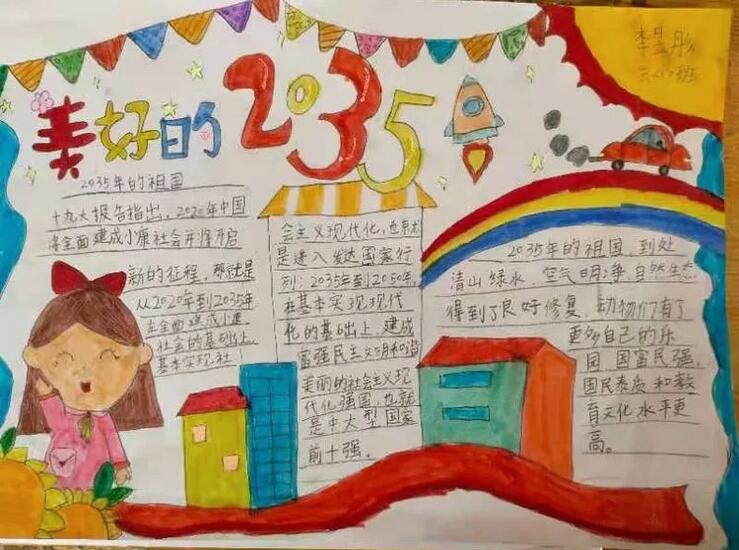 美好的2035
李昱彤
三(八)班
2035年的祖国
十九大报告指出，2020年中国
将全面建成小康社会并将开启
新的征程，那就是
从2020年到2035年
在全面建成小康
社会的基础上，
基本实现社
会主义现代化，也就
是进入发达国家行
列：2035年到2050年，
在基本实现现代
化的基础上，建成
富强民主文明和谐
美丽的社会主义现
代化强国，也就
是中大型国家
前十强。
2035年的祖国，到处
清山绿水，空气明净，自然生态
得到了良好修复，动物们有了
更多自己的乐
园，国富民强，
国民素质和教
育文化水平更
高。